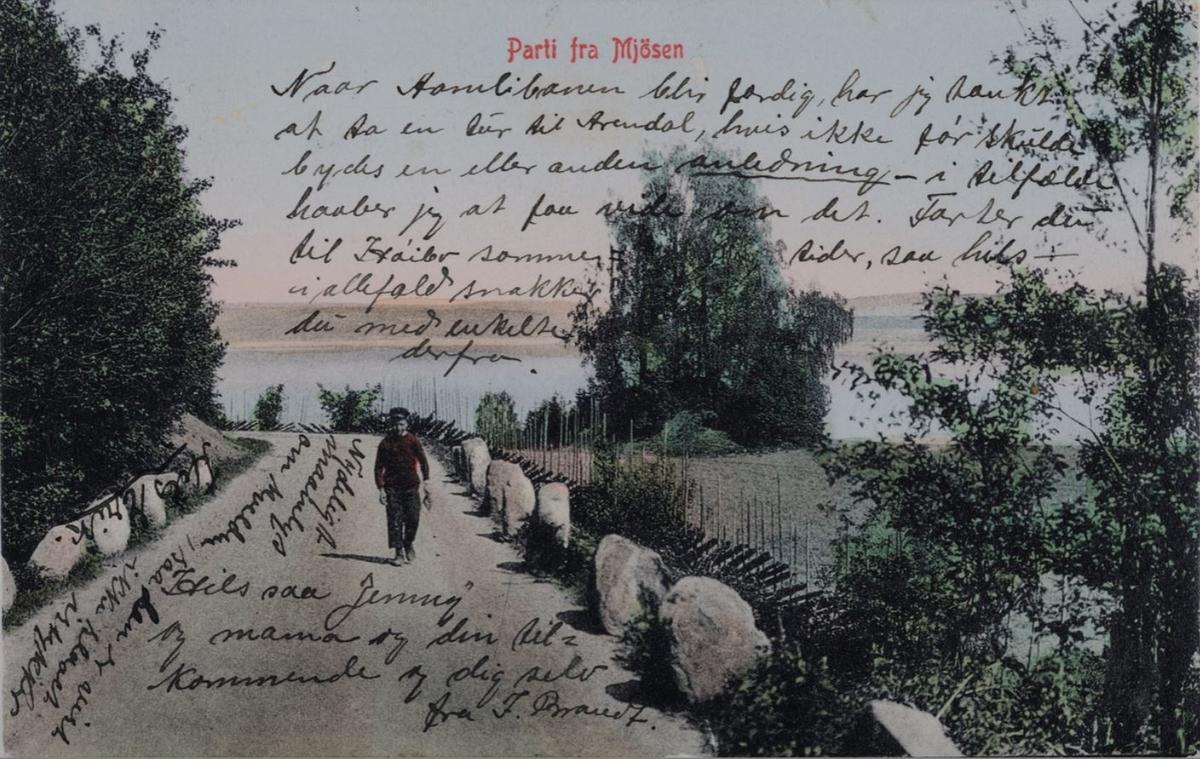 Parti fra Mjösen
Naar Aamlibanen blir færdig, har jeg tænkt
at ta en tur til Arendal, hvis ikke før skulde
bydes en eller anden anledning – i tilfælde
haaber jeg at faa vide om det. Farter du
til sommer tider, saa hils –
i allefald snakker
du med enkelte
derfra.
Nydeligt
maanelys
om kvelden, saa
ikke
Hils saa "Jenny"
og mama og din til=
kommende og dig selv
fra J. Brandt.